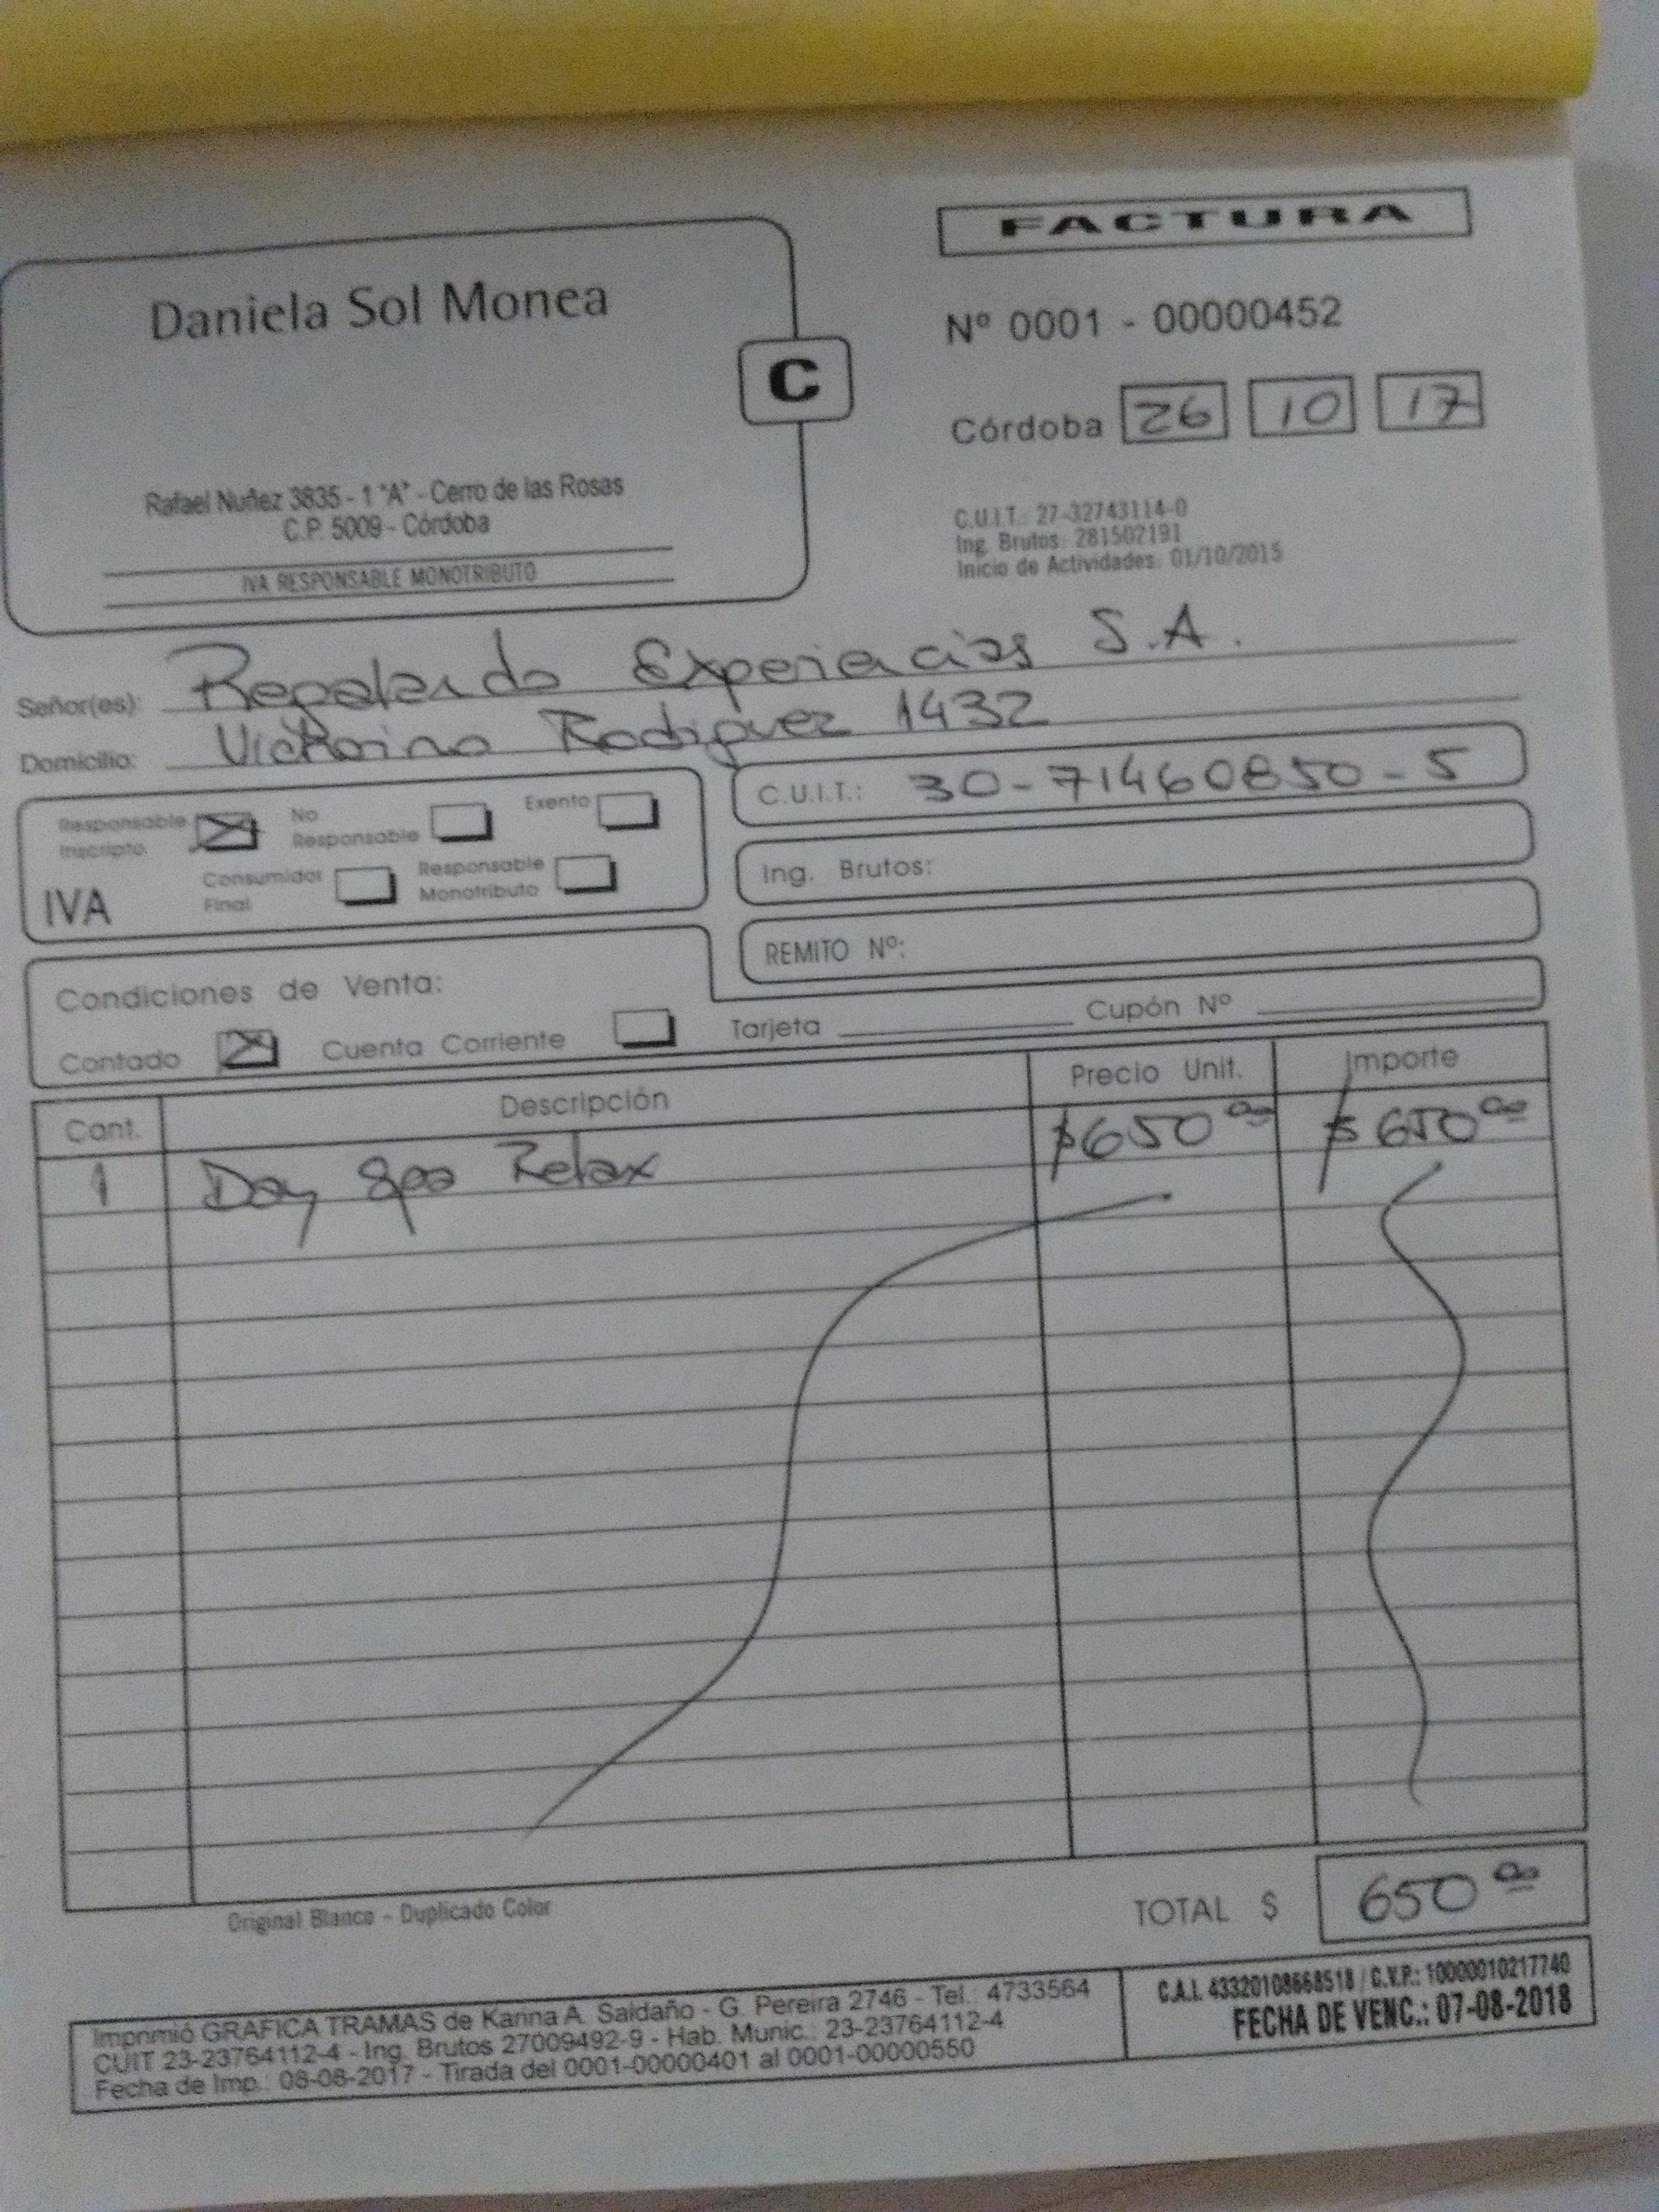 FACTURA
Daniela Sol Monea
C
Nº 0001 - 00000452
Córdoba 26 10 17
Rafael Nuñez 3835 - 1 "A" - Cerro de las Rosas
C.P. 5009 - Córdoba
IVA RESPONSABLE MONOTRIBUTO
C.U.I.T.: 27-32743114-0
Ing. Brutos: 281502191
Inicio de Actividades: 01/10/2015
Señor(es): Regalando Experiencias S.A.
Domicilio: Victorino Rodriguez 1432
Responsable Inscripto No Responsable Exento
IVA Consumidor Final Responsable Monotributo
C.U.I.T.: 30-71460850-5
Ing. Brutos:
REMITO Nº:
Condiciones de Venta:
Contado Cuenta Corriente Tarjeta Cupón Nº
Cant. Descripción Precio Unit. Importe
1 Day Spa Relax $650 00 $650 00
Original Blanco - Duplicado Color
TOTAL $ 650 00
Imprimió GRAFICA TRAMAS de Karina A. Saldaño - G. Pereira 2746 - Tel.: 4733564
CUIT 23-23764112-4 - Ing. Brutos 27009492-9 - Hab. Munic.: 23-23764112-4
Fecha de Imp.: 08-08-2017 - Tirada del 0001-00000401 al 0001-00000550
C.A.I. 43320108668518 / C.V.P.: 10000010217740
FECHA DE VENC.: 07-08-2018